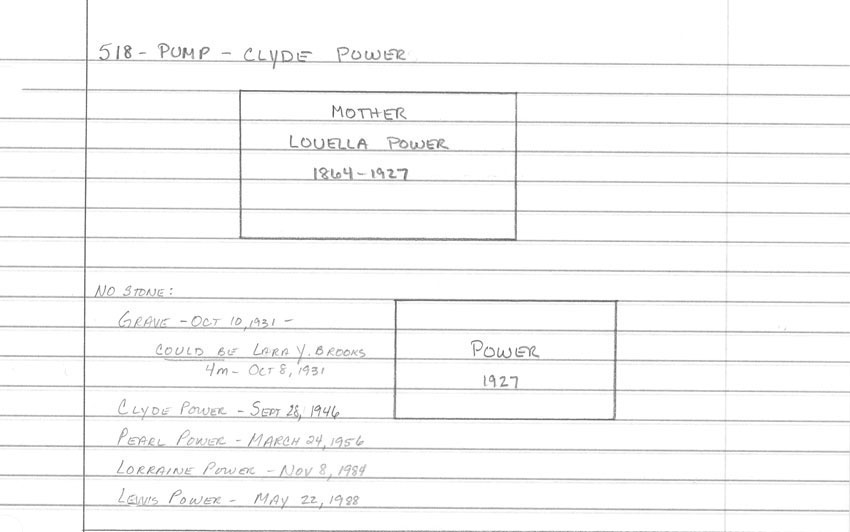 518 - PUMP - CLYDE POWER
MOTHER
LOUELLA POWER
1864-1927
NO STONE:
GRAVE - OCT 10, 1931 -
COULD BE LARA Y. BROOKS
4m - OCT 8, 1931
POWER
1927
CLYDE POWER - SEPT 28, 1946
PEARL POWER - MARCH 24, 1956
LORRAINE POWER - NOV 8, 1984
LEWIS POWER - MAY 22, 1988